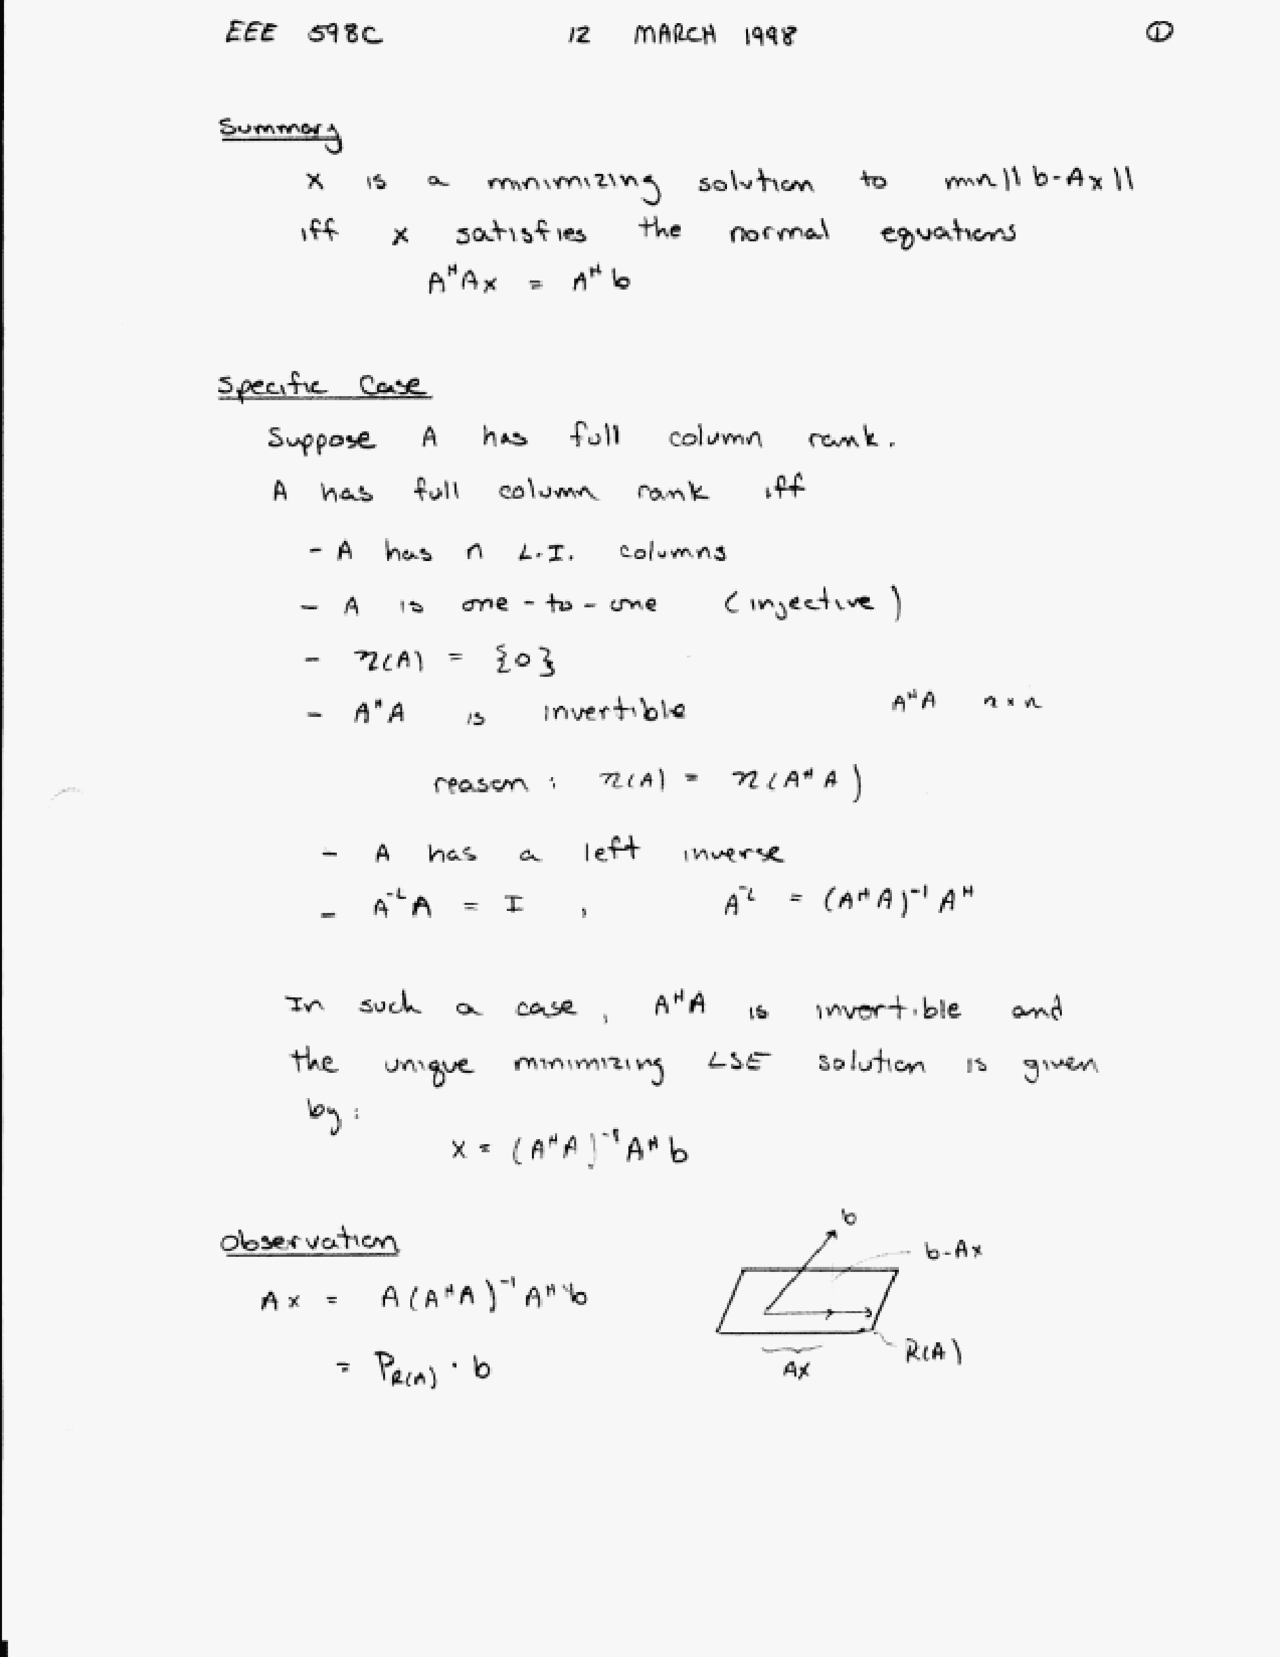 EEE 598C 12 MARCH 1998 ①
Summary
x is a minimizing solution to min || b-Ax ||
iff x satisfies the normal equations
AᴴAx = Aᴴb
Specific Case
Suppose A has full column rank.
A has full column rank iff
- A has n L.I. columns
- A is one-to-one (injective)
- η(A) = {0}
- AᴴA is invertible AᴴA n×n
reason: η(A) = η(AᴴA)
- A has a left inverse
- A⁻ᴸA = I , A⁻ᴸ = (AᴴA)⁻¹Aᴴ
In such a case, AᴴA is invertible and
the unique minimizing LSE solution is given
by:
x = (AᴴA)⁻¹Aᴴb
Observation
Ax = A(AᴴA)⁻¹Aᴴb
= P_R(A) · b
b
b-Ax
R(A)
Ax